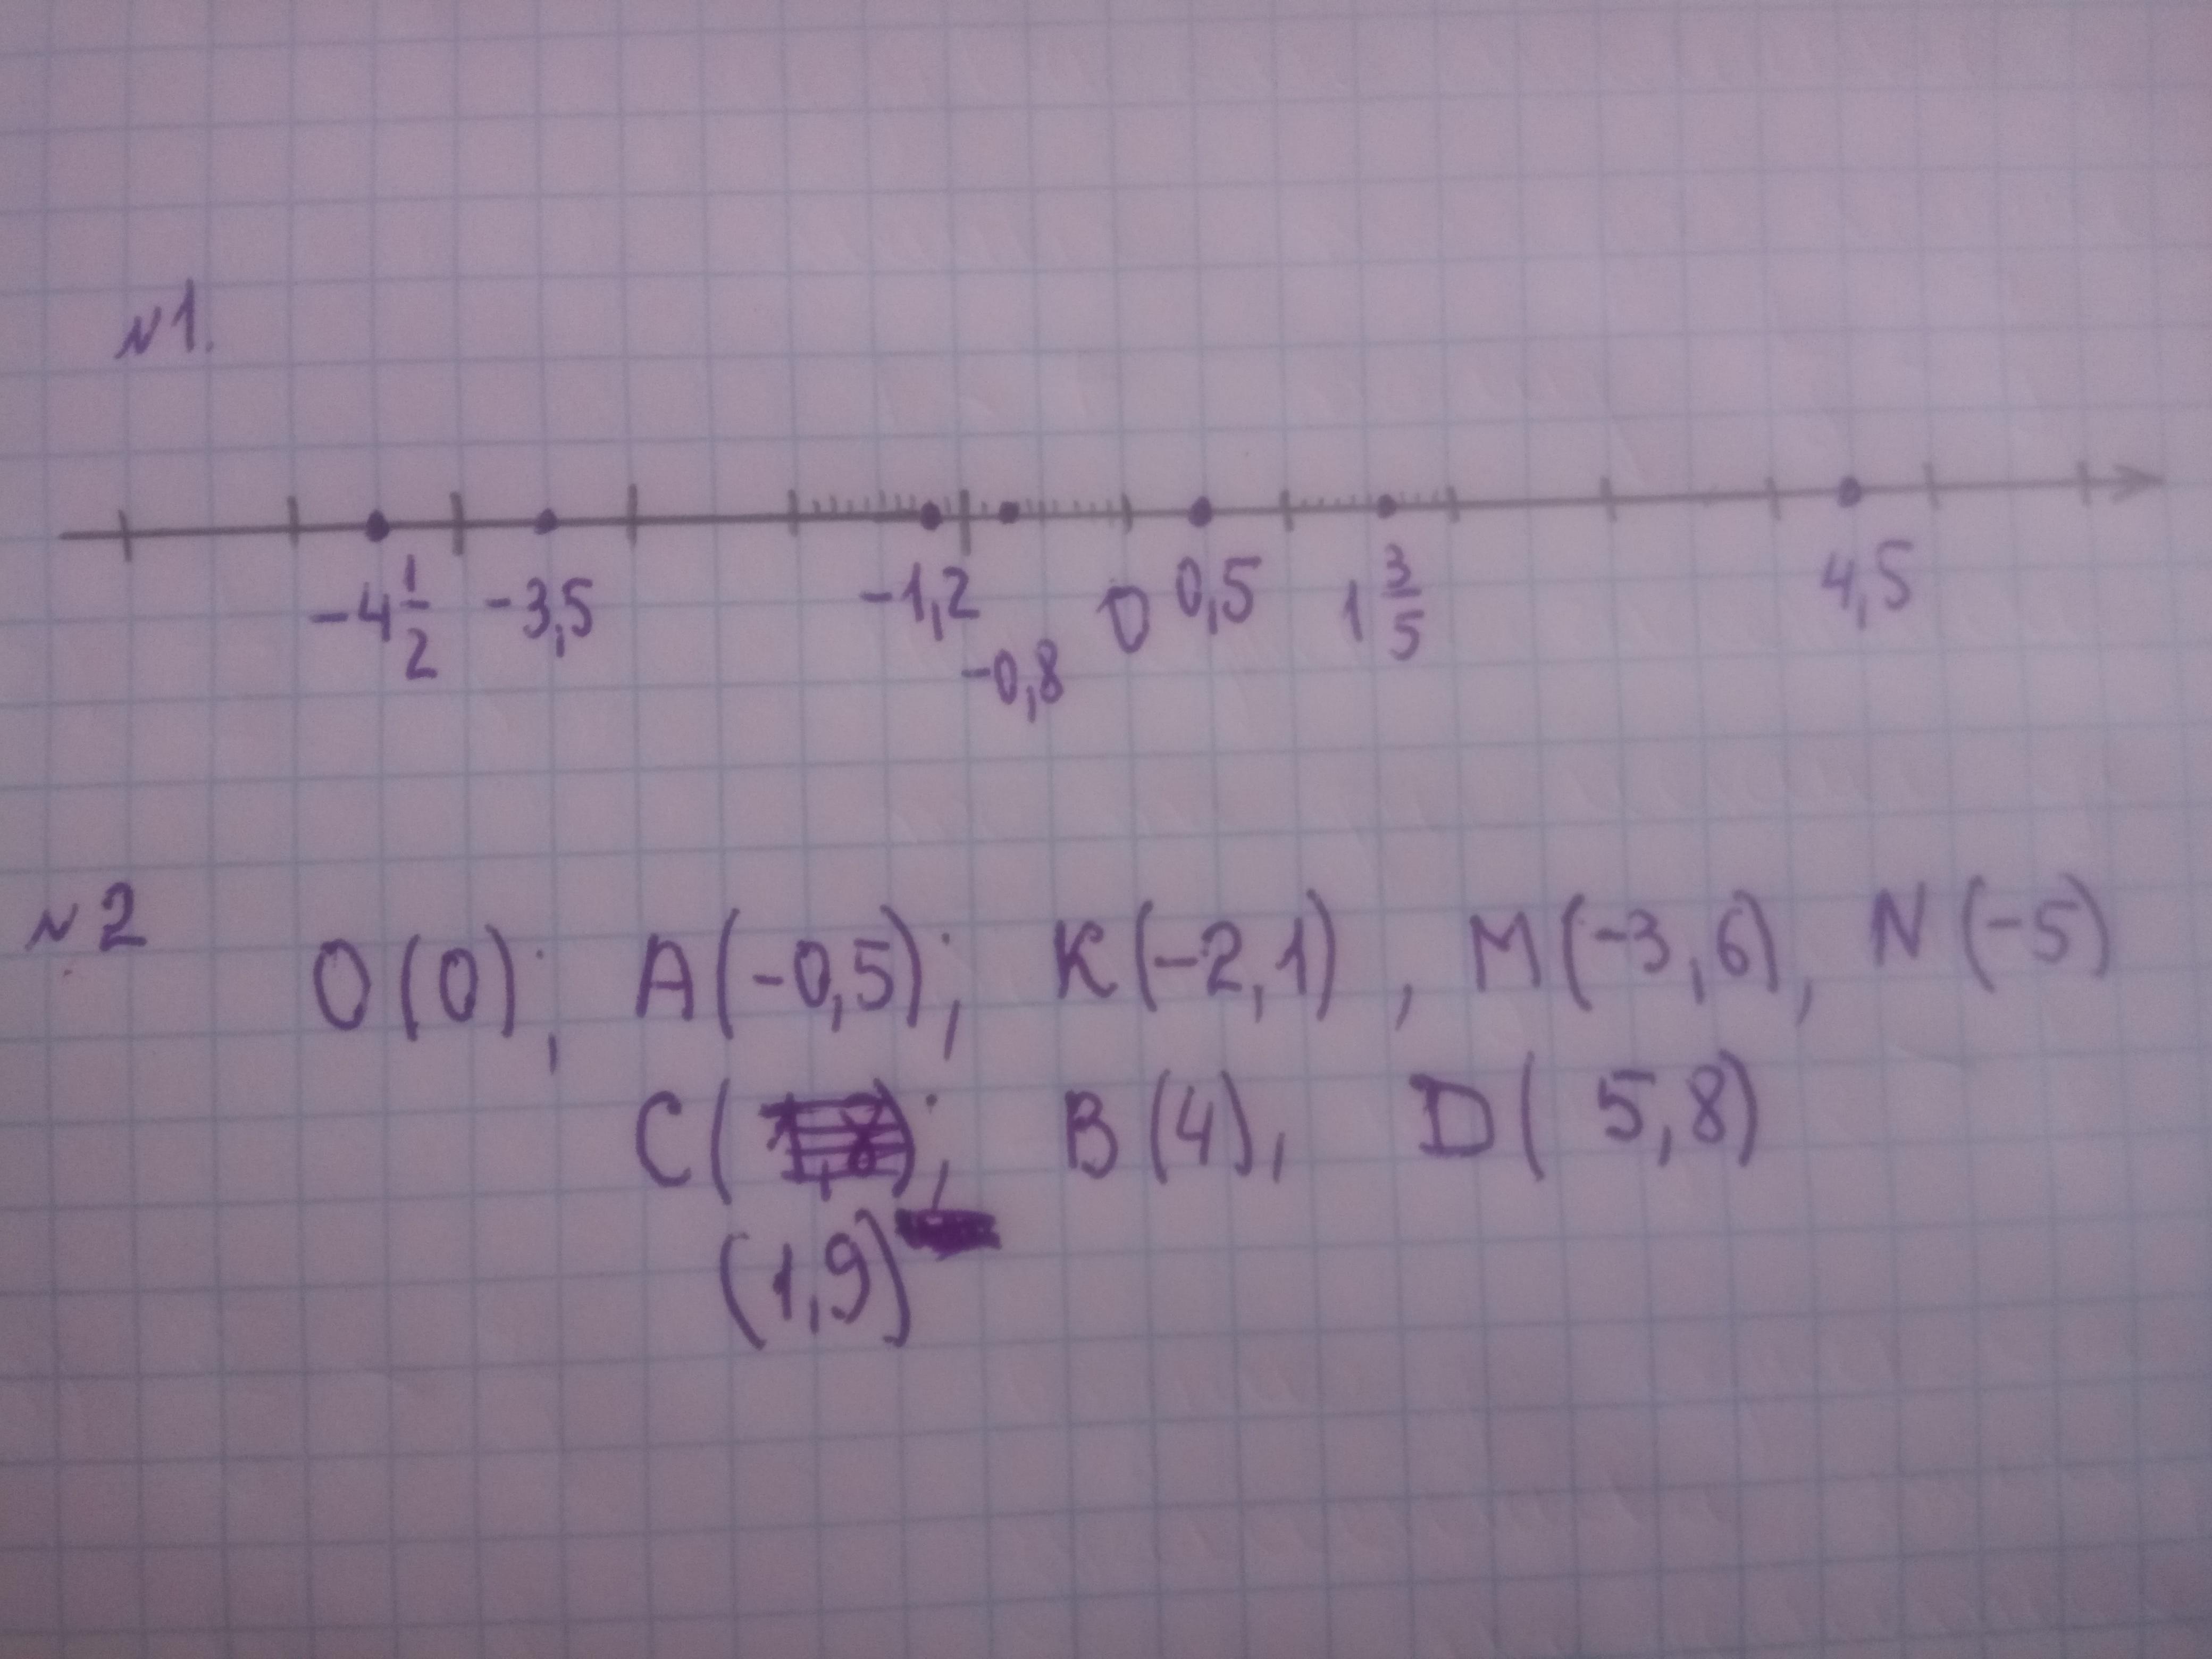 №1.
-4 1/2 -3,5 -1,2 -0,8 0 0,5 1 3/5 4,5
№2 O(0); A(-0,5); K(-2,1), M(-3,6), N(-5)
C( ); B(4), D( 5,8)
(1,9)